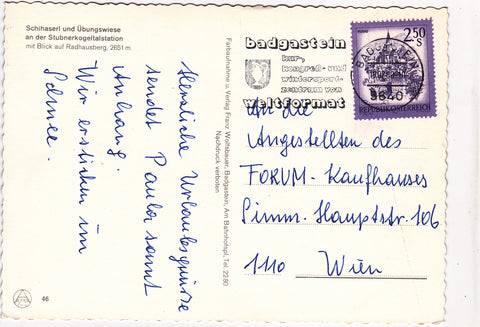 Schihaserl und Übungswiese
an der Stubnerkogeltalstation
mit Blick auf Radhausberg, 2651 m
Herzliche Urlaubsgrüsse
sendet Paula samt
Anhang.
Wir ersticken im
Schnee.
46
Farbaufnahme u. Verlag Franz Wolfsbauer, Badgastein, Am Bahnhofspl., Tel. 2280
Nachdruck verboten
badgastein
kur-,
kongreß- und
wintersport-
zentrum von
weltformat
BADGASTEIN
5640
2.50
S
REPUBLIK ÖSTERREICH
An die
Angestellten des
FORUM-Kaufhauses
Simm. Hauptstr. 106
1110 Wien